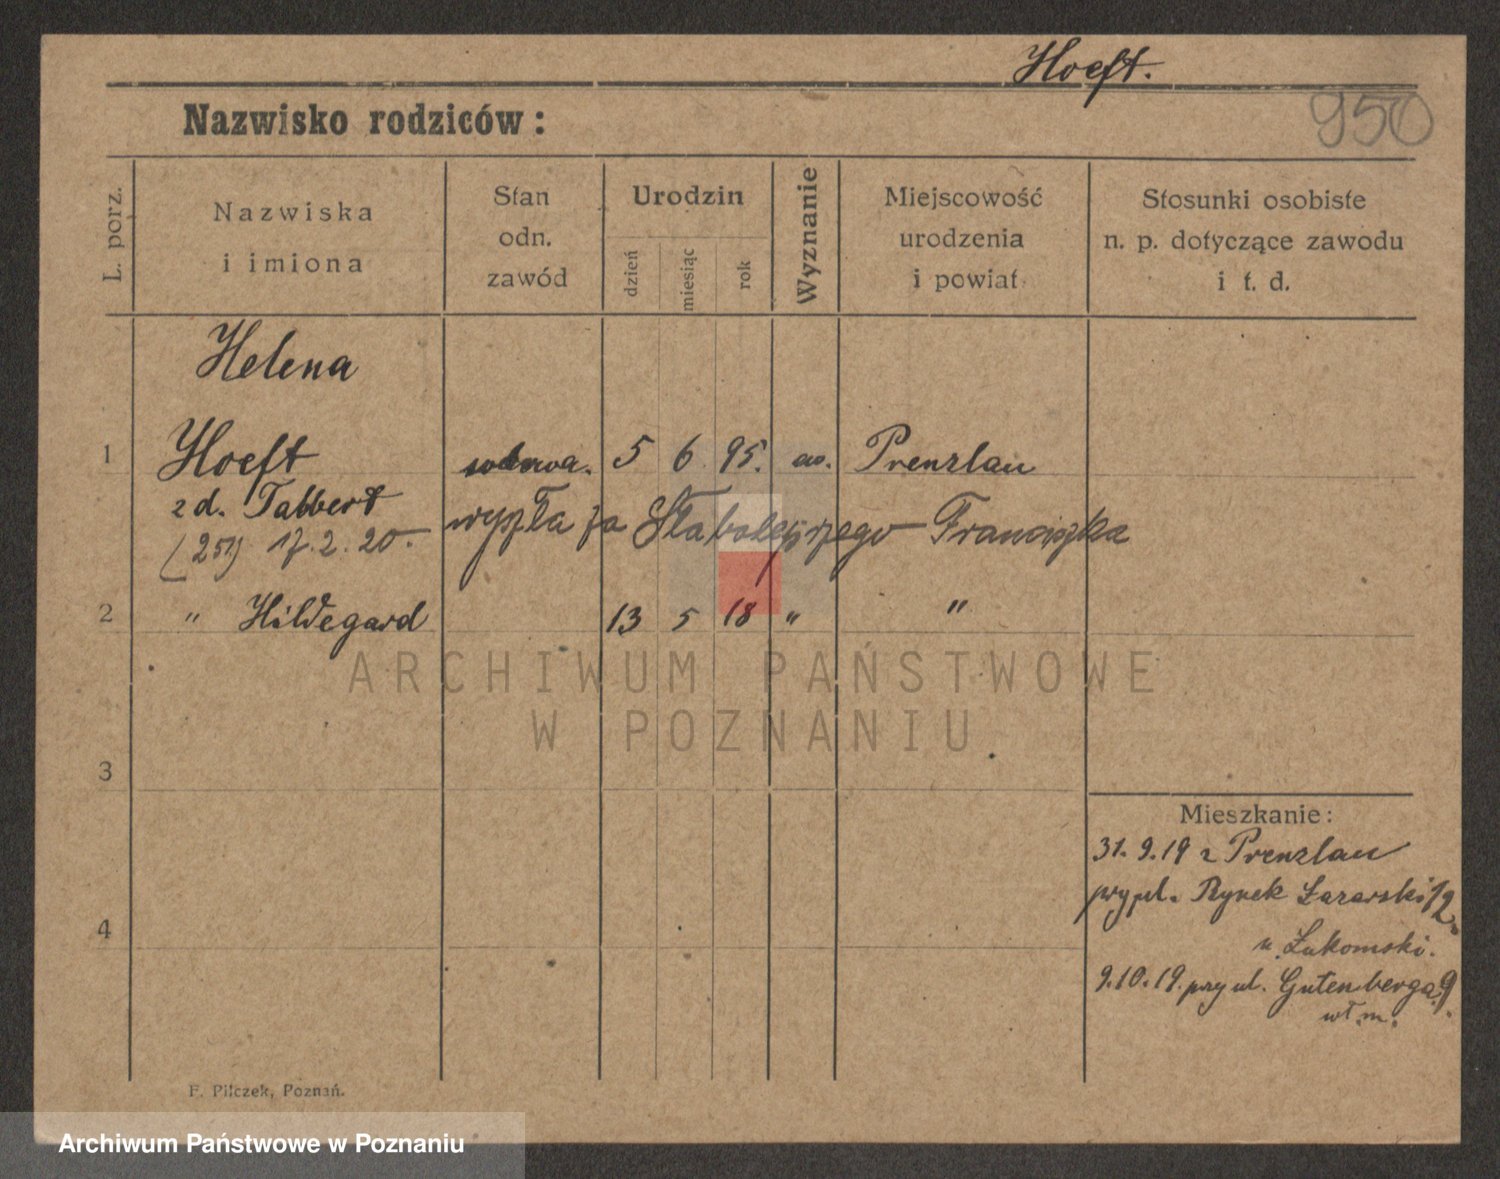 Hoeft.
950
Nazwisko rodziców:
L. porz.
Nazwiska
i imiona
Stan
odn.
zawód
Urodzin
dzień
miesiąc
rok
Wyznanie
Miejscowość
urodzenia
i powiat
Stosunki osobiste
n. p. dotyczące zawodu
i t. d.
Helena
1 Hoeft wdowa. 5 6 95. Prenzlau
z d. Tabbert
wyszła za Franciszka
(251) 17.2.20.
2 " Hildegard 13 5 18 " "
ARCHIWUM PAŃSTWOWE
W POZNANIU
3
4
Mieszkanie:
31.9.19 z Prenzlau
przy pl. Rynek Łazarski 12
u Łukomski.
9.10.19. przy ul. Gutenberga 9.
wł. m.
F. Pilczek, Poznań.
Archiwum Państwowe w Poznaniu